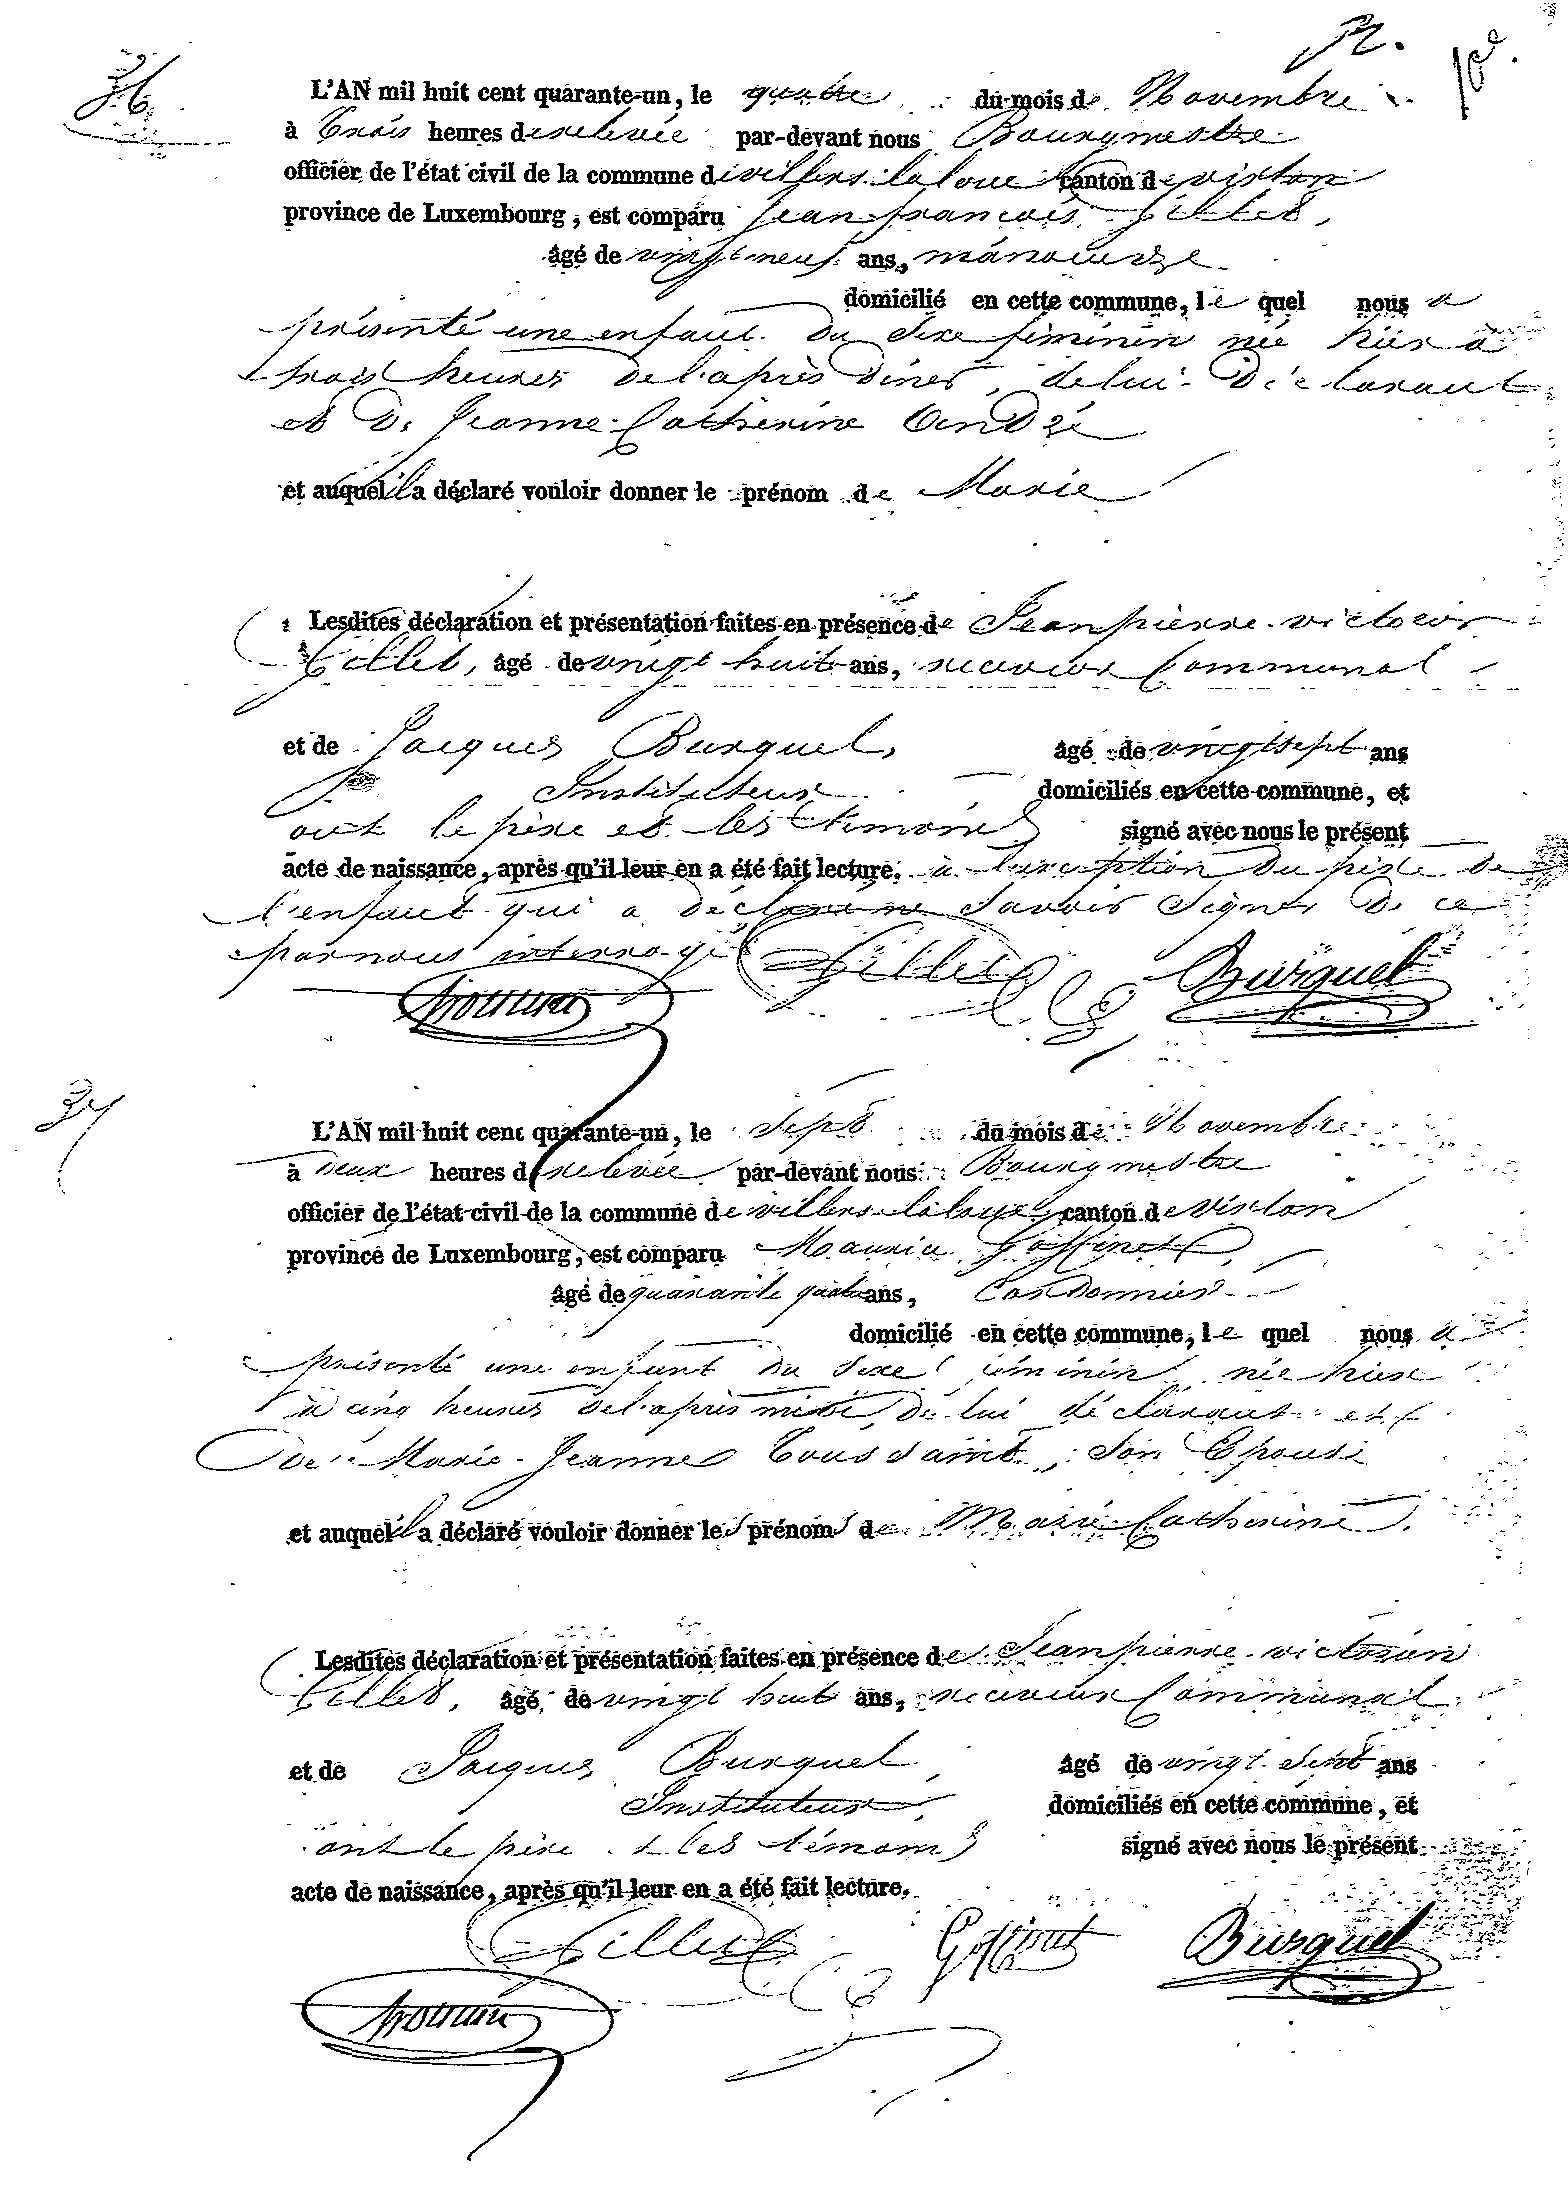 36.
L'AN mil huit cent quarante-un, le quatre du mois de Novembre
à Trois heures de relevée par-devant nous Bourgmestre
officier de l'état civil de la commune de villers la loue canton de virton
province de Luxembourg, est comparu Jean françois Gillet,
âgé de vingt neuf ans, manoeuvre
domicilié en cette commune, le quel nous a
présenté une enfant du Sexe féminin née hier à
trois heures de l'après diner, de lui Déclarant
et De Jeanne Catherine André
et auquel il a déclaré vouloir donner le prénom de Marie
Lesdites déclaration et présentation faites en présence de Jean pierre victorin
Gillet, âgé de vingt huit ans, receveur Communal
et de Jacques Burquel, âgé de vingt sept ans
Instituteur domiciliés en cette commune, et
ont le père et les témoins signé avec nous le présent
acte de naissance, après qu'il leur en a été fait lecture, à l'exception du père de
l'enfant qui a déclaré ne Savoir Signer De ce
par nous interrogé
Gillet Burquel
37
L'AN mil huit cent quarante-un, le Sept du mois de Novembre
à Deux heures de relevée par-devant nous Bourgmestre
officier de l'état civil de la commune de villers la loue canton de virton
province de Luxembourg, est comparu Maurice Goffinet,
âgé de quarante quatre ans, Cordonnier
domicilié en cette commune, le quel nous a
présenté une enfant Du Sexe féminin née hier
à cinq heures de l'après midi, de lui déclarant et
de Marie Jeanne Toussaint, Son Epouse
et auquel il a déclaré vouloir donner les prénoms de Marie Catherine.
Lesdites déclaration et présentation faites en présence de Jean pierre victorin
Gillet, âgé de vingt huit ans, receveur Communal
et de Jacques Burquel, âgé de vingt Sept ans
Instituteur, domiciliés en cette commune, et
ont le père et les témoins signé avec nous le présent
acte de naissance, après qu'il leur en a été fait lecture.
Gillet Goffinet Burquel